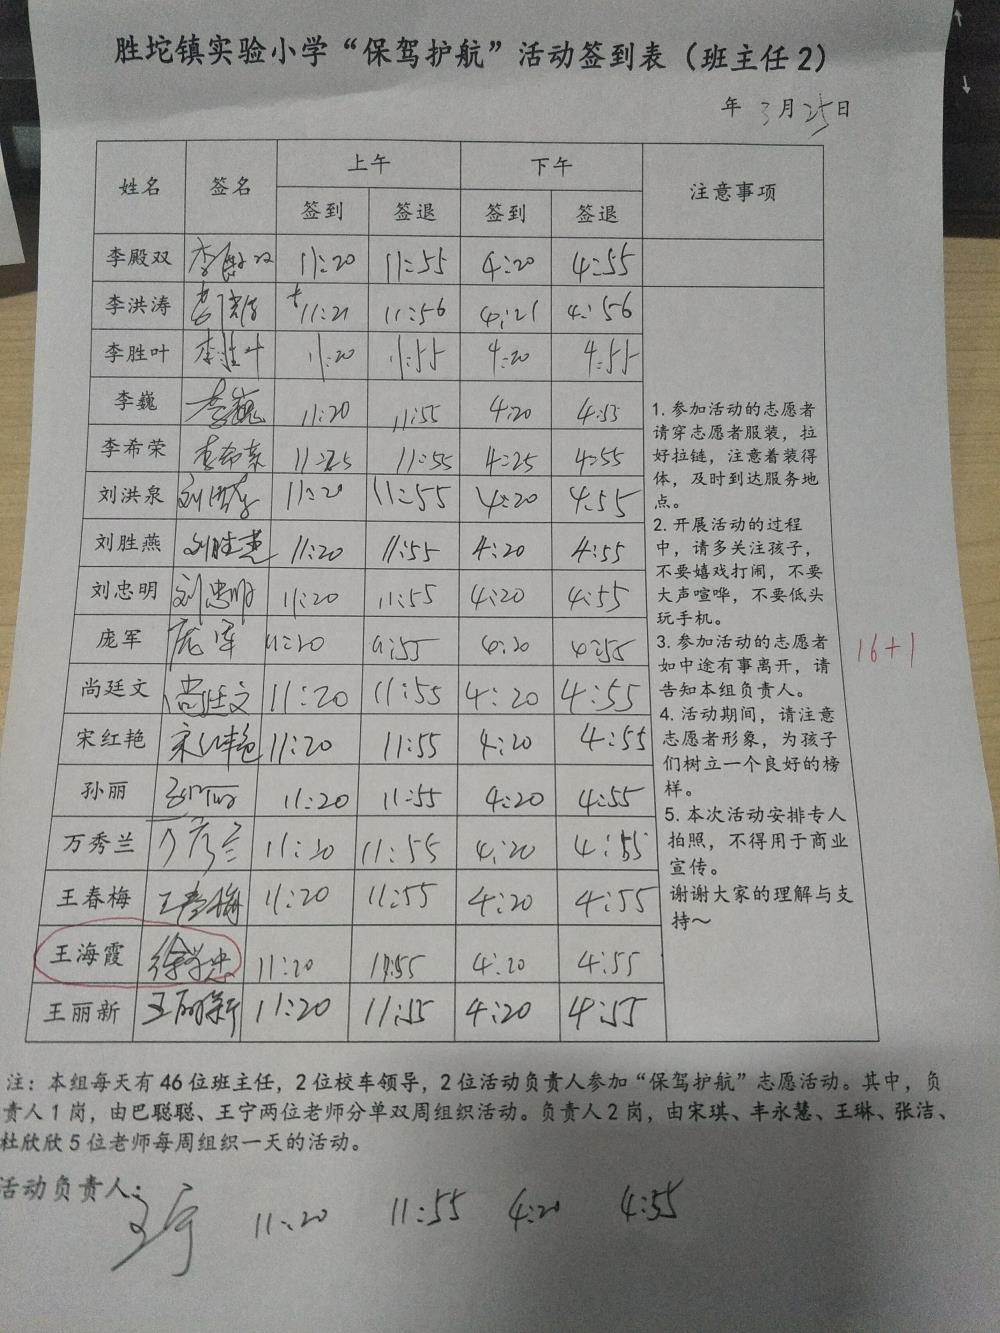 胜坨镇实验小学“保驾护航”活动签到表（班主任2）
年 3月25日
姓名 签名 上午 下午 注意事项
签到 签退 签到 签退
李殿双 李殿双 11:20 11:55 4:20 4:55
李洪涛 李洪涛 11:21 11:56 4:21 4:56
李胜叶 李胜叶 11:20 11:55 4:20 4:55
李巍 李巍 11:20 11:55 4:20 4:55
李希荣 李希荣 11:25 11:55 4:25 4:55
刘洪泉 刘洪泉 11:20 11:55 4:20 4:55
刘胜燕 刘胜燕 11:20 11:55 4:20 4:55
刘忠明 刘忠明 11:20 11:55 4:20 4:55
庞军 庞军 11:20 11:55 4:20 4:55
尚廷文 尚廷文 11:20 11:55 4:20 4:55
宋红艳 宋红艳 11:20 11:55 4:20 4:55
孙丽 孙丽 11:20 11:55 4:20 4:55
万秀兰 万秀兰 11:20 11:55 4:20 4:55
王春梅 王春梅 11:20 11:55 4:20 4:55
王海霞 徐学忠 11:20 11:55 4:20 4:55
王丽新 王丽新 11:20 11:55 4:20 4:55
1. 参加活动的志愿者
请穿志愿者服装，拉
好拉链，注意着装得
体，及时到达服务地
点。
2. 开展活动的过程
中，请多关注孩子，
不要嬉戏打闹，不要
大声喧哗，不要低头
玩手机。
3. 参加活动的志愿者
如中途有事离开，请
告知本组负责人。
4. 活动期间，请注意
志愿者形象，为孩子
们树立一个良好的榜
样。
5. 本次活动安排专人
拍照，不得用于商业
宣传。
谢谢大家的理解与支
持～
16+1
注：本组每天有46位班主任，2位校车领导，2位活动负责人参加“保驾护航”志愿活动。其中，负
责人1岗，由巴聪聪、王宁两位老师分单双周组织活动。负责人2岗，由宋琪、丰永慧、王琳、张洁、
杜欣欣5位老师每周组织一天的活动。
活动负责人： 王宁 11:20 11:55 4:20 4:55